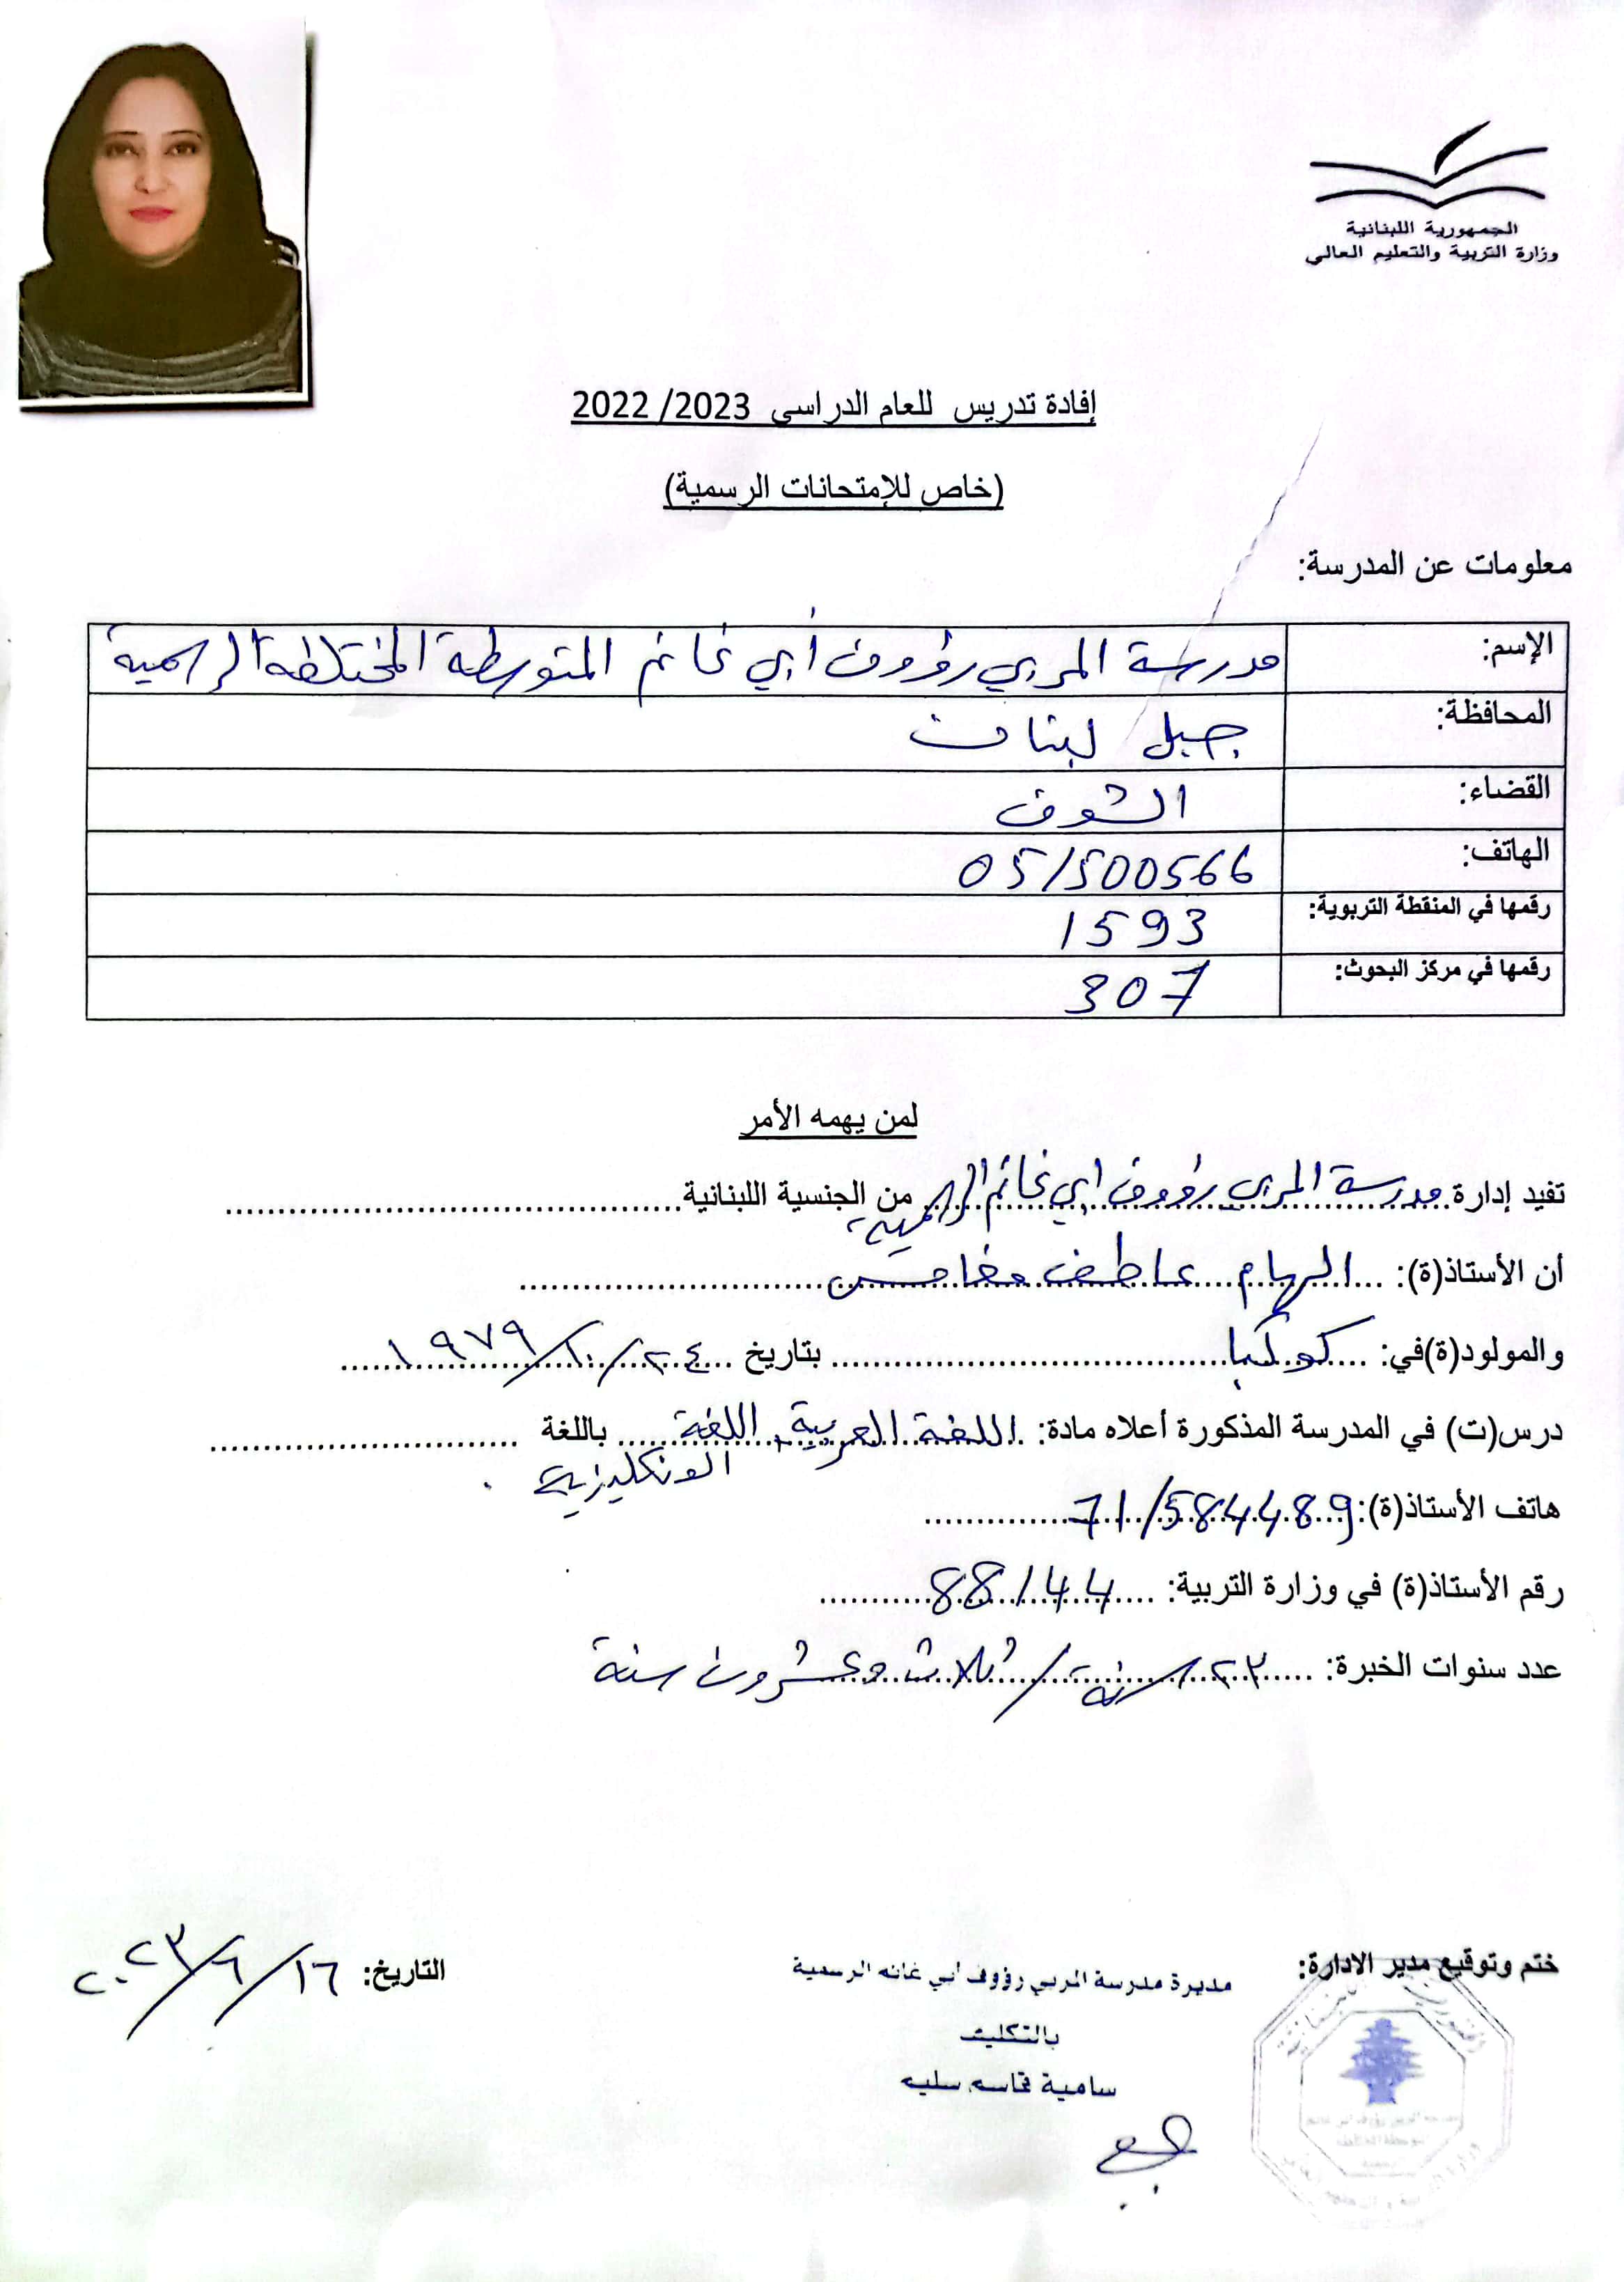 الجمهورية اللبنانية
وزارة التربية والتعليم العالي
إفادة تدريس للعام الدراسي 2023/ 2022
(خاص للإمتحانات الرسمية)
معلومات عن المدرسة:
الإسم: مدرسة المربي رؤوف أبي غانم المتوسطة المختلطة الرسمية
المحافظة: جبل لبنان
القضاء: الشوف
الهاتف: 05/500566
رقمها في المنقطة التربوية: 1593
رقمها في مركز البحوث: 307
لمن يهمه الأمر
تفيد إدارة مدرسة المربي رؤوف ابي غانم الرسمية من الجنسية اللبنانية
أن الأستاذ(ة): الهام عاطف مغامس
والمولود(ة)في: كوكبا بتاريخ ٢٤/١٠/١٩٧٩
درس(ت) في المدرسة المذكورة أعلاه مادة: اللغة العربية، اللغة باللغة
الانكليزية .
هاتف الأستاذ(ة): 71/584489
رقم الأستاذ(ة) في وزارة التربية: 88144
عدد سنوات الخبرة: ٢٣ سنة / ثلاث وعشرون سنة
ختم وتوقيع مدير الادارة: مديرة مدرسة المربي رؤوف ابي غانم الرسمية التاريخ: ١٦/٦/٢٠٢٣
بالتكليف
سامية قاسم سليم